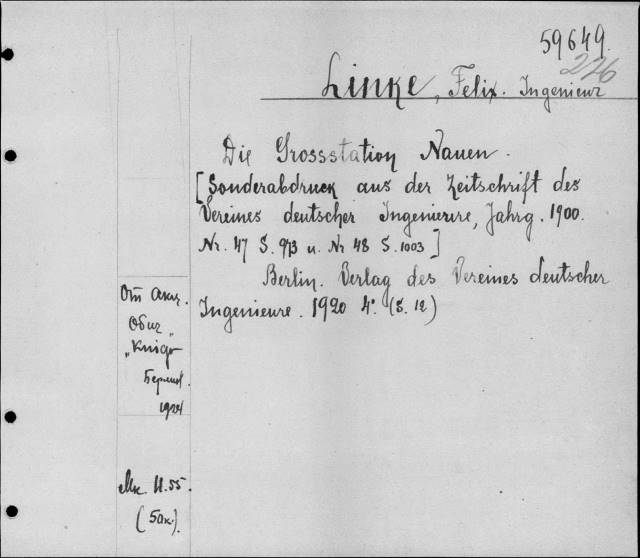 59649.
226
Linke, Felix. Ingenieur
Die Grossstation Nauen.
[Sonderabdruck aus der Zeitschrift des
Vereines deutscher Ingenieure, Jahrg. 1900.
Nr. 47 S. 973 u. Nr 48 S. 1003]
Berlin. Verlag des Vereines deutscher
Ingenieure. 1920 4°. (S. 12)
От Акц.
Общ.
„Книга“
Берлин.
1924
Мк. 11.55.